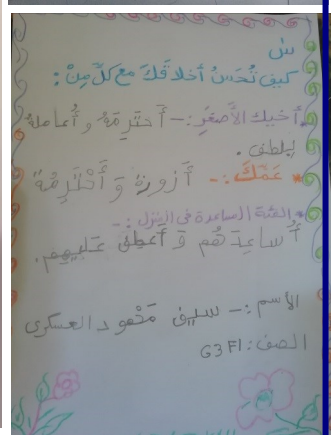 س
كيف تُحَسِّنُ أخلاقَكَ مع كلِّ مِنْ:
*أخيك الأَصغَرِ:- أَحتَرِمَهُ و أُعامله
بلطفٍ.
* عَمِّكَ:- أَزورهُ وَ أَحْتَرِمُهُ
* الفئة المساعدة في المنزل:-
أُساعِدَهُم وَ أعطف عليهم.
الأسم:- سيف محمود العسكرى
الصف: G3F1